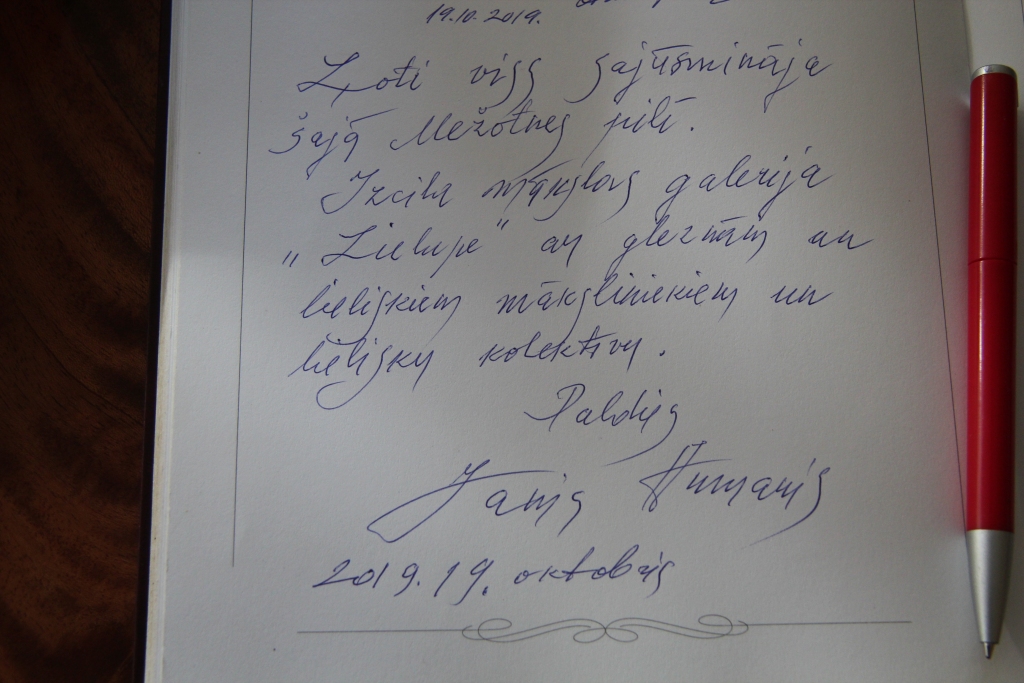 19.10.2019.
Ļoti viss sajūsmināja
šajā Mežotnes pilī.
Izcila mākslas galerija
„Lielupe" ar gleznām un
lieliskiem māksliniekiem un
lielisku kolektīvu.
Paldies
Janis
2019. 19. oktobris